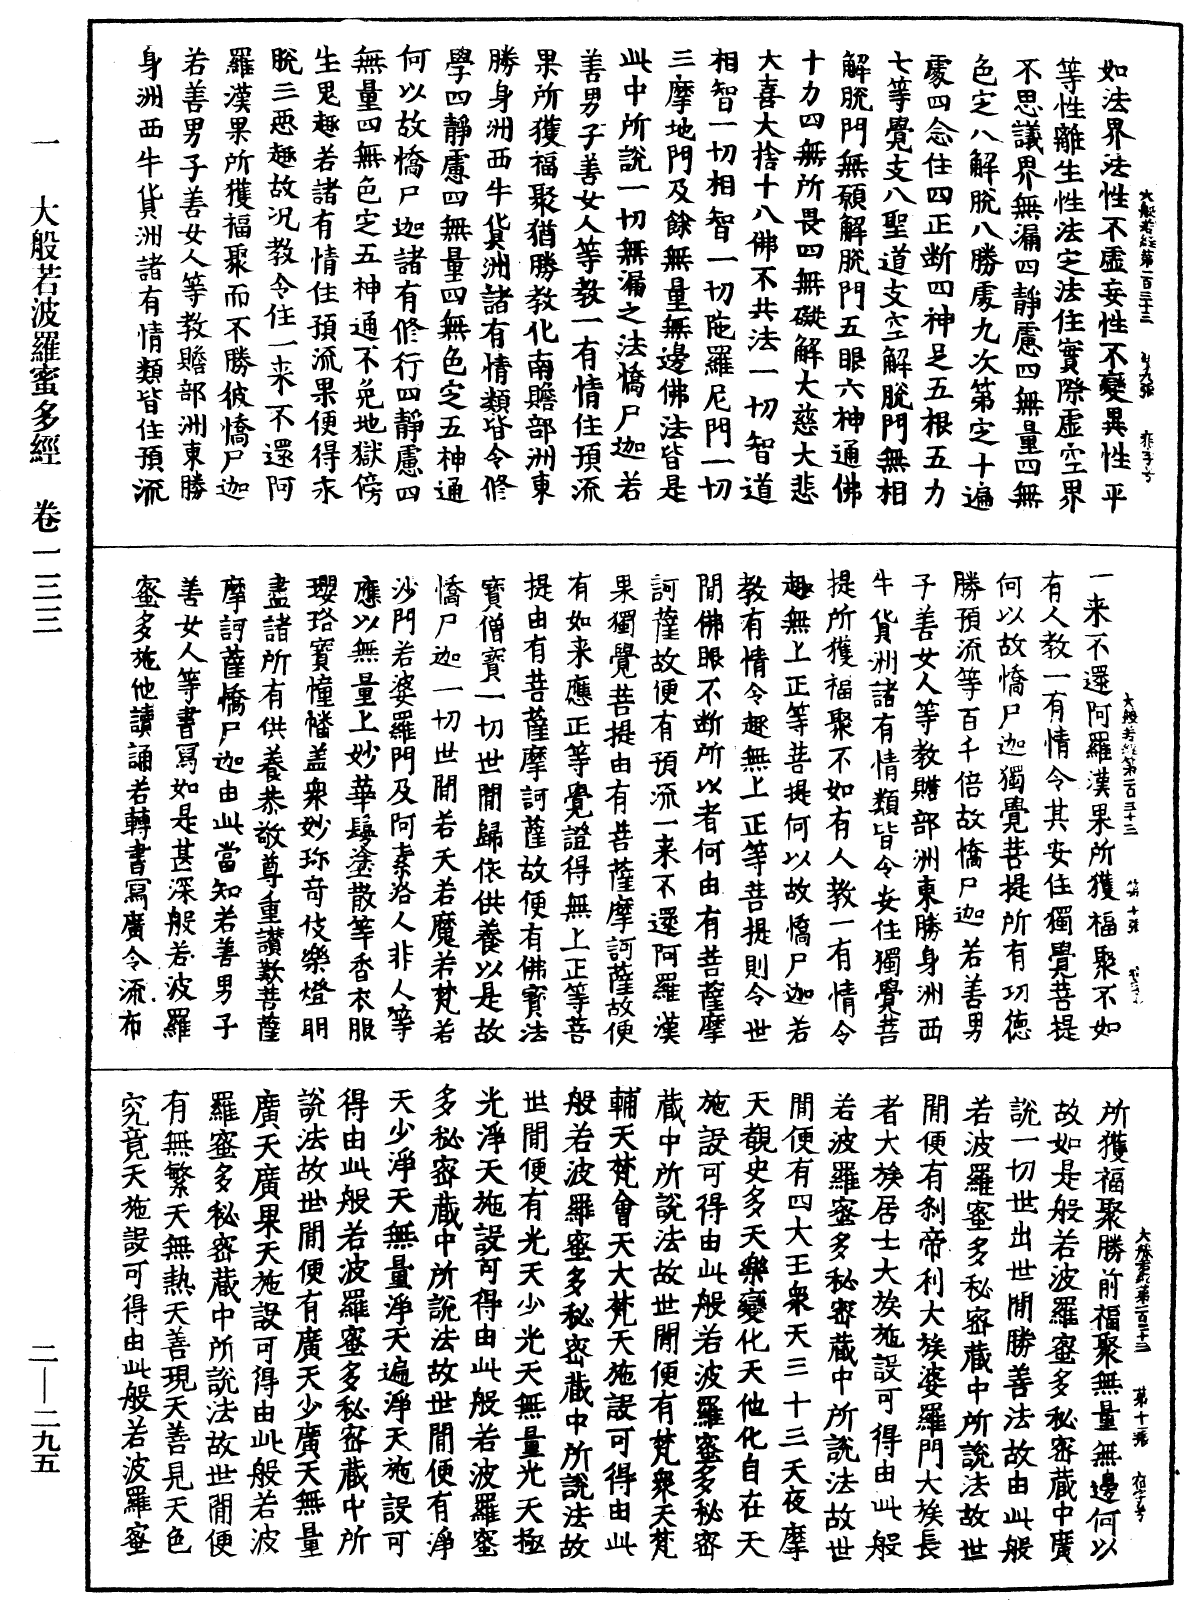 如法界法性不虛妄性不變異性平
等性離生性法定法住實際虛空界
不思議界無漏四靜慮四無量四無
色定八解脫八勝處九次第定十遍
處四念住四正斷四神足五根五力
七等覺支八聖道支空解脫門無相
解脫門無願解脫門五眼六神通佛
十力四無所畏四無礙解大慈大悲
大喜大捨十八佛不共法一切智道
相智一切相智一切陁羅尼門一切
三摩地門及餘無量無邊佛法皆是
此中所說一切無漏之法憍尸迦若
善男子善女人等教一有情住預流
果所獲福聚猶勝教化南贍部洲東
勝身洲西牛貨洲諸有情類皆令修
學四靜慮四無量四無色定五神通
何以故憍尸迦諸有修行四靜慮四
無量四無色定五神通不免地獄傍
生鬼趣若諸有情住預流果便得永
脫三惡趣故况教令住一来不還阿
羅漢果所獲福聚而不勝彼憍尸迦
若善男子善女人等教贍部洲東勝
身洲西牛貨洲諸有情類皆住預流
大般若經第一百三十三
一来不還阿羅漢果所獲福聚不如
有人教一有情令其安住獨覺菩提
何以故憍尸迦獨覺菩提所有功德
勝預流等百千倍故憍尸迦若善男
子善女人等教贍部洲東勝身洲西
牛貨洲諸有情類皆令安住獨覺菩
提所獲福聚不如有人教一有情令
趣無上正等菩提何以故憍尸迦若
教有情令趣無上正等菩提則令世
間佛眼不斷所以者何由有菩薩摩
訶薩故便有預流一来不還阿羅漢
果獨覺菩提由有菩薩摩訶薩故便
有如来應正等覺證得無上正等菩
提由有菩薩摩訶薩故便有佛寶法
寶僧寶一切世間歸依供養以是故
憍尸迦一切世間若天若魔若梵若
沙門若婆羅門及阿素洛人非人等
應以無量上妙華鬘塗散等香衣服
瓔珞寶幢幡盖衆妙珎竒伎樂燈明
盡諸所有供養恭敬尊重讃歎菩薩
摩訶薩憍尸迦由此當知若善男子
善女人等書寫如是甚深般若波羅
蜜多施他讀誦若轉書寫廣令流布
大般若經第一百三十三　第十張
所獲福聚勝前福聚無量無邊何以
故如是般若波羅蜜多秘密藏中廣
說一切世出世間勝善法故由此般
若波羅蜜多秘密藏中所說法故世
間便有刹帝利大族婆羅門大族長
者大族居士大族施設可得由此般
若波羅蜜多秘密藏中所說法故世
間便有四大王衆天三十三天夜摩
天覩史多天樂變化天他化自在天
施設可得由此般若波羅蜜多秘密
藏中所說法故世間便有梵衆天梵
輔天梵會天大梵天施設可得由此
般若波羅蜜多秘密藏中所說法故
世間便有光天少光天無量光天極
光淨天施設可得由此般若波羅蜜
多秘密藏中所說法故世間便有淨
天少淨天無量淨天遍淨天施設可
得由此般若波羅蜜多秘密藏中所
說法故世間便有廣天少廣天無量
廣天廣果天施設可得由此般若波
羅蜜多秘密藏中所說法故世間便
有無繁天無熱天善現天善見天色
究竟天施設可得由此般若波羅蜜
大般若經第一百三十三　第十一張　宿字号
一　大般若波羅蜜多經　卷一三三
二—二九五